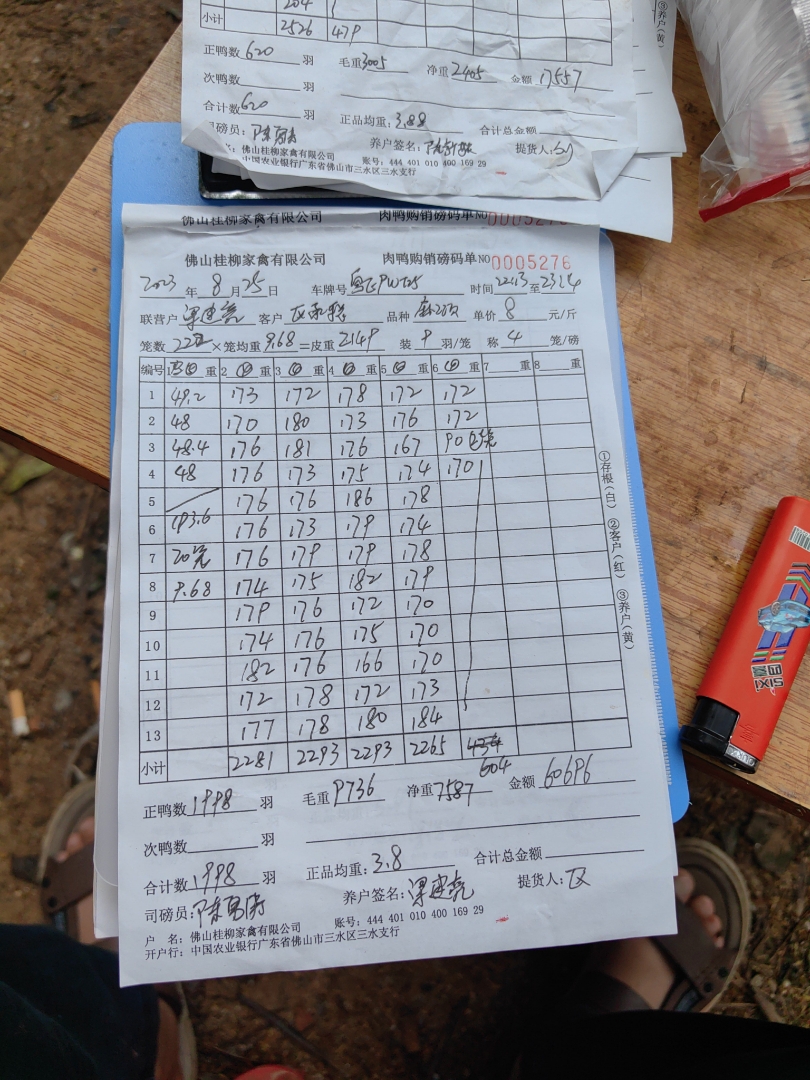 204 1
小计 2526 479
正鸭数 620 羽 毛重 3005 净重 2405 金额 17557
次鸭数 羽
合计数 620 羽 正品均重: 3.88 合计总金额
司磅员: 养户签名: 提货人:
名: 佛山桂柳家禽有限公司 账号: 444 401 010 400 169 29
中国农业银行广东省佛山市三水区三水支行
③养户(黄)
佛山桂柳家禽有限公司 肉鸭购销磅码单 NO 0005276
佛山桂柳家禽有限公司 肉鸭购销磅码单 NO 0005276
2023 年 8 月 25 日 车牌号 时间 2213 至 2314
联营户 梁建亮 客户 品种 单价 8 元/斤
笼数 222 × 笼均重 9.68 =皮重 2149 装 9 羽/笼 称 4 笼/磅
编号 1 重 2 重 3 重 4 重 5 重 6 重 7 重 8 重
1 49.2 173 172 178 172 172
2 48 170 180 173 176 172
3 48.4 176 181 176 167 90
4 48 176 173 175 174 170
5 176 176 186 178
6 193.6 176 173 179 174
7 20笼 176 179 179 178
8 9.68 174 175 182 179
9 179 176 172 170
10 174 176 175 170
11 182 176 166 170
12 172 178 172 173
13 177 178 180 184
小计 2281 2293 2293 2265 604
正鸭数 1998 羽 毛重 9736 净重 7587 金额 60696
次鸭数 羽
合计数 1998 羽 正品均重: 3.8 合计总金额
司磅员: 养户签名: 梁建亮 提货人: 区
户 名: 佛山桂柳家禽有限公司 账号: 444 401 010 400 169 29
开户行: 中国农业银行广东省佛山市三水区三水支行
①存根(白) ②客户(红) ③养户(黄)
SIXI